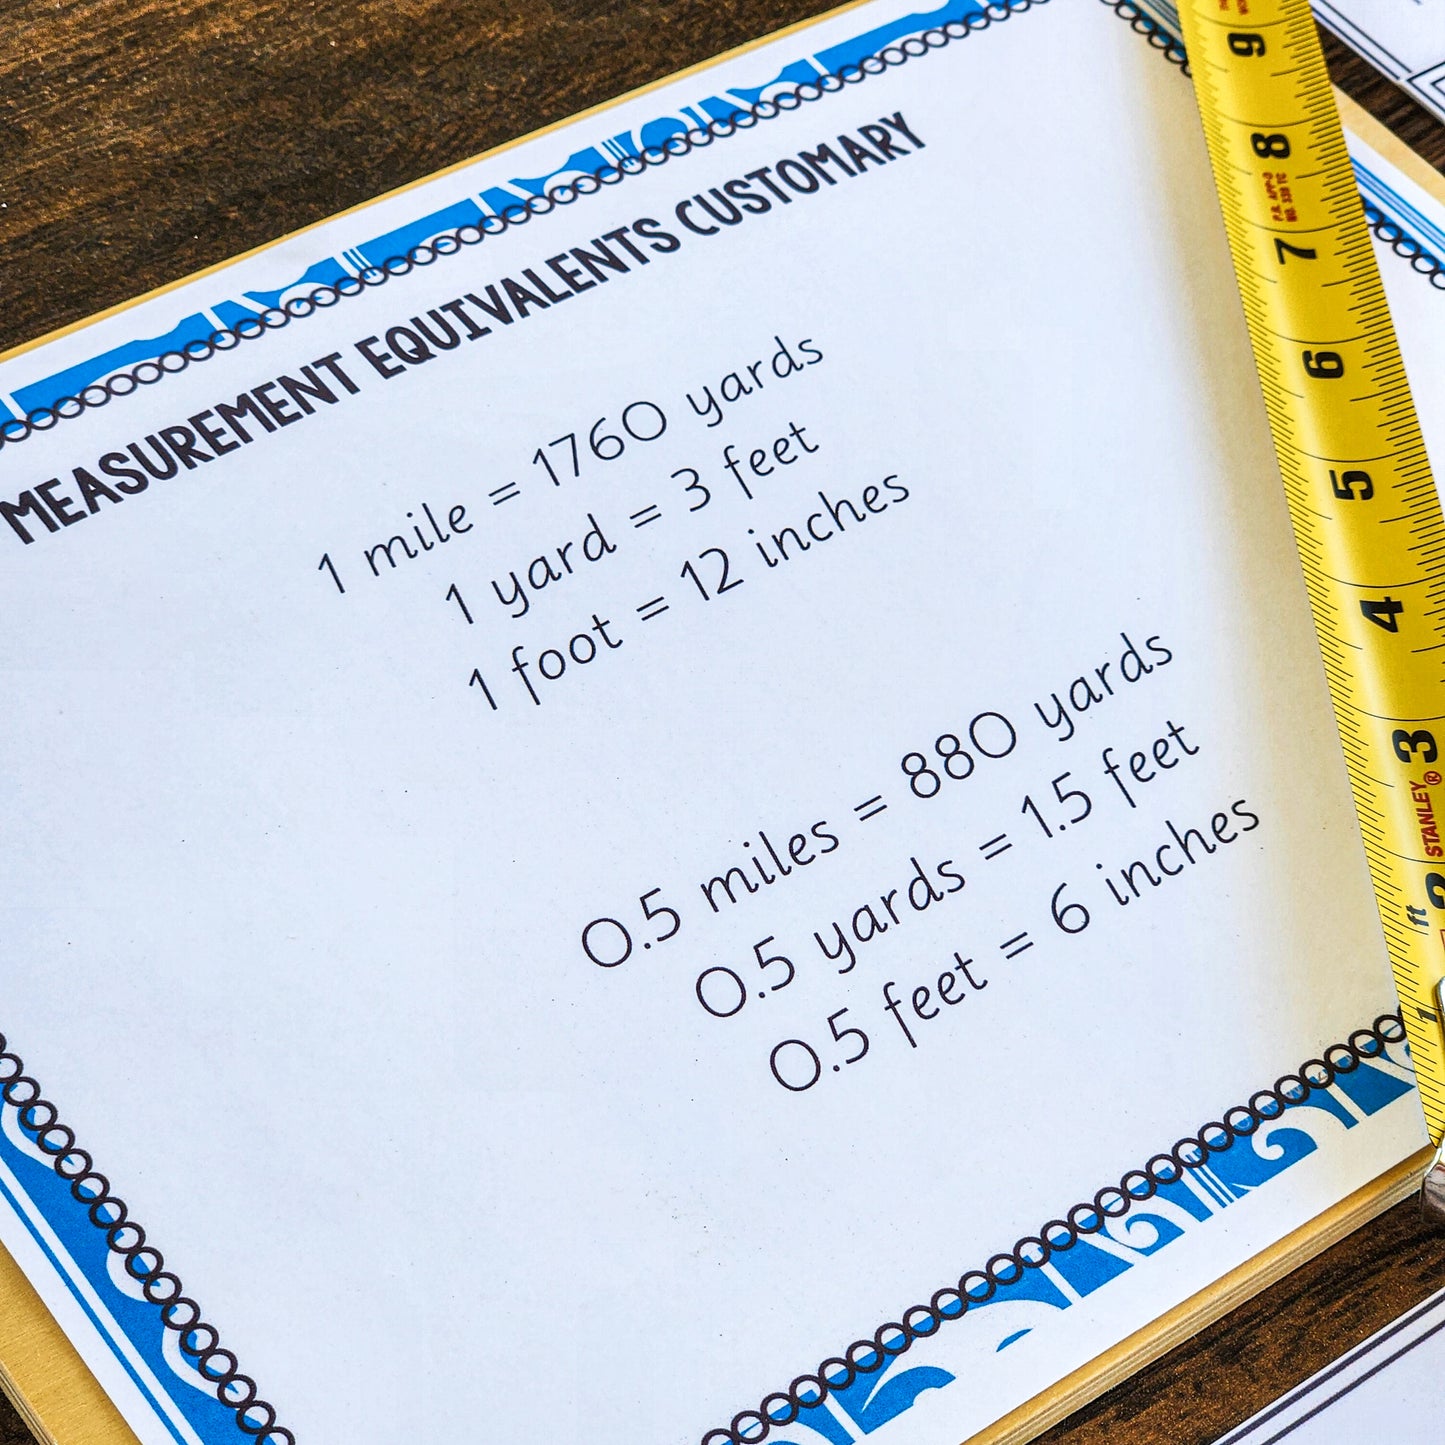 MEASUREMENT EQUIVALENTS CUSTOMARY
1 mile = 1760 yards
1 yard = 3 feet
1 foot = 12 inches
0.5 miles = 880 yards
0.5 yards = 1.5 feet
0.5 feet = 6 inches
9
8
P.S. APP-3
NO. 539 FC
7
6
5
4
3
STANLEY®
2
ft
1